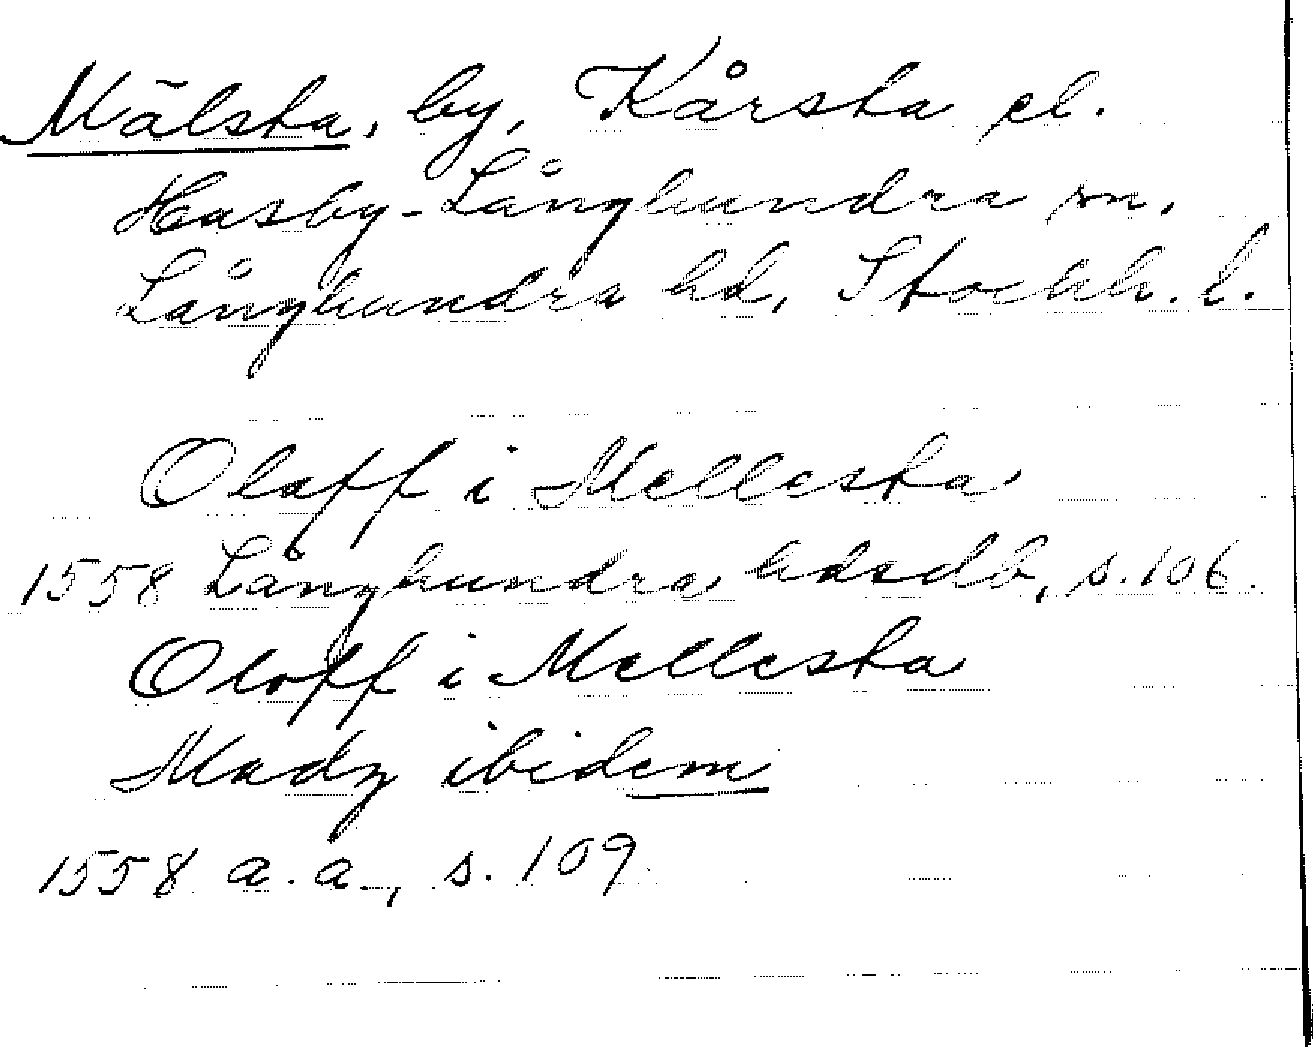 Mälsta, by, Kårsta el.
Husby-Långhundra sn.
Långhundra hd, Stockh. l.
Oloff i Mellesta
1558 Långhundra hdsdb, s. 106.
Oloff i Mellesta
Madz ibidem
1558 a.a., s. 109